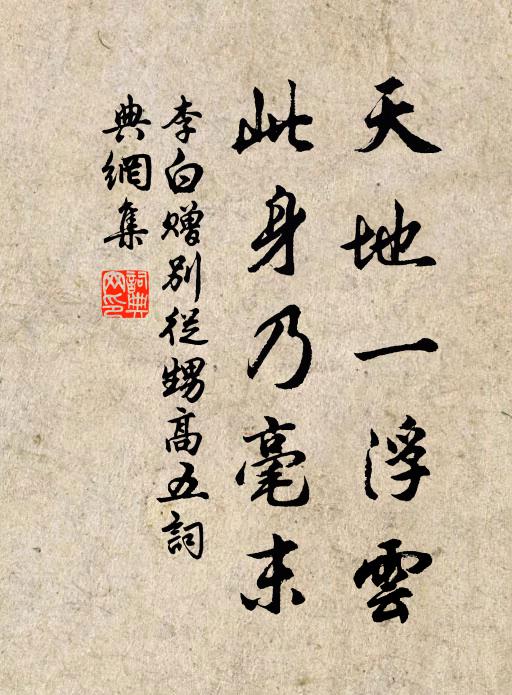 天地一浮雲
此身乃毫末
李白贈別從甥高五詞
典網集
詞典網印